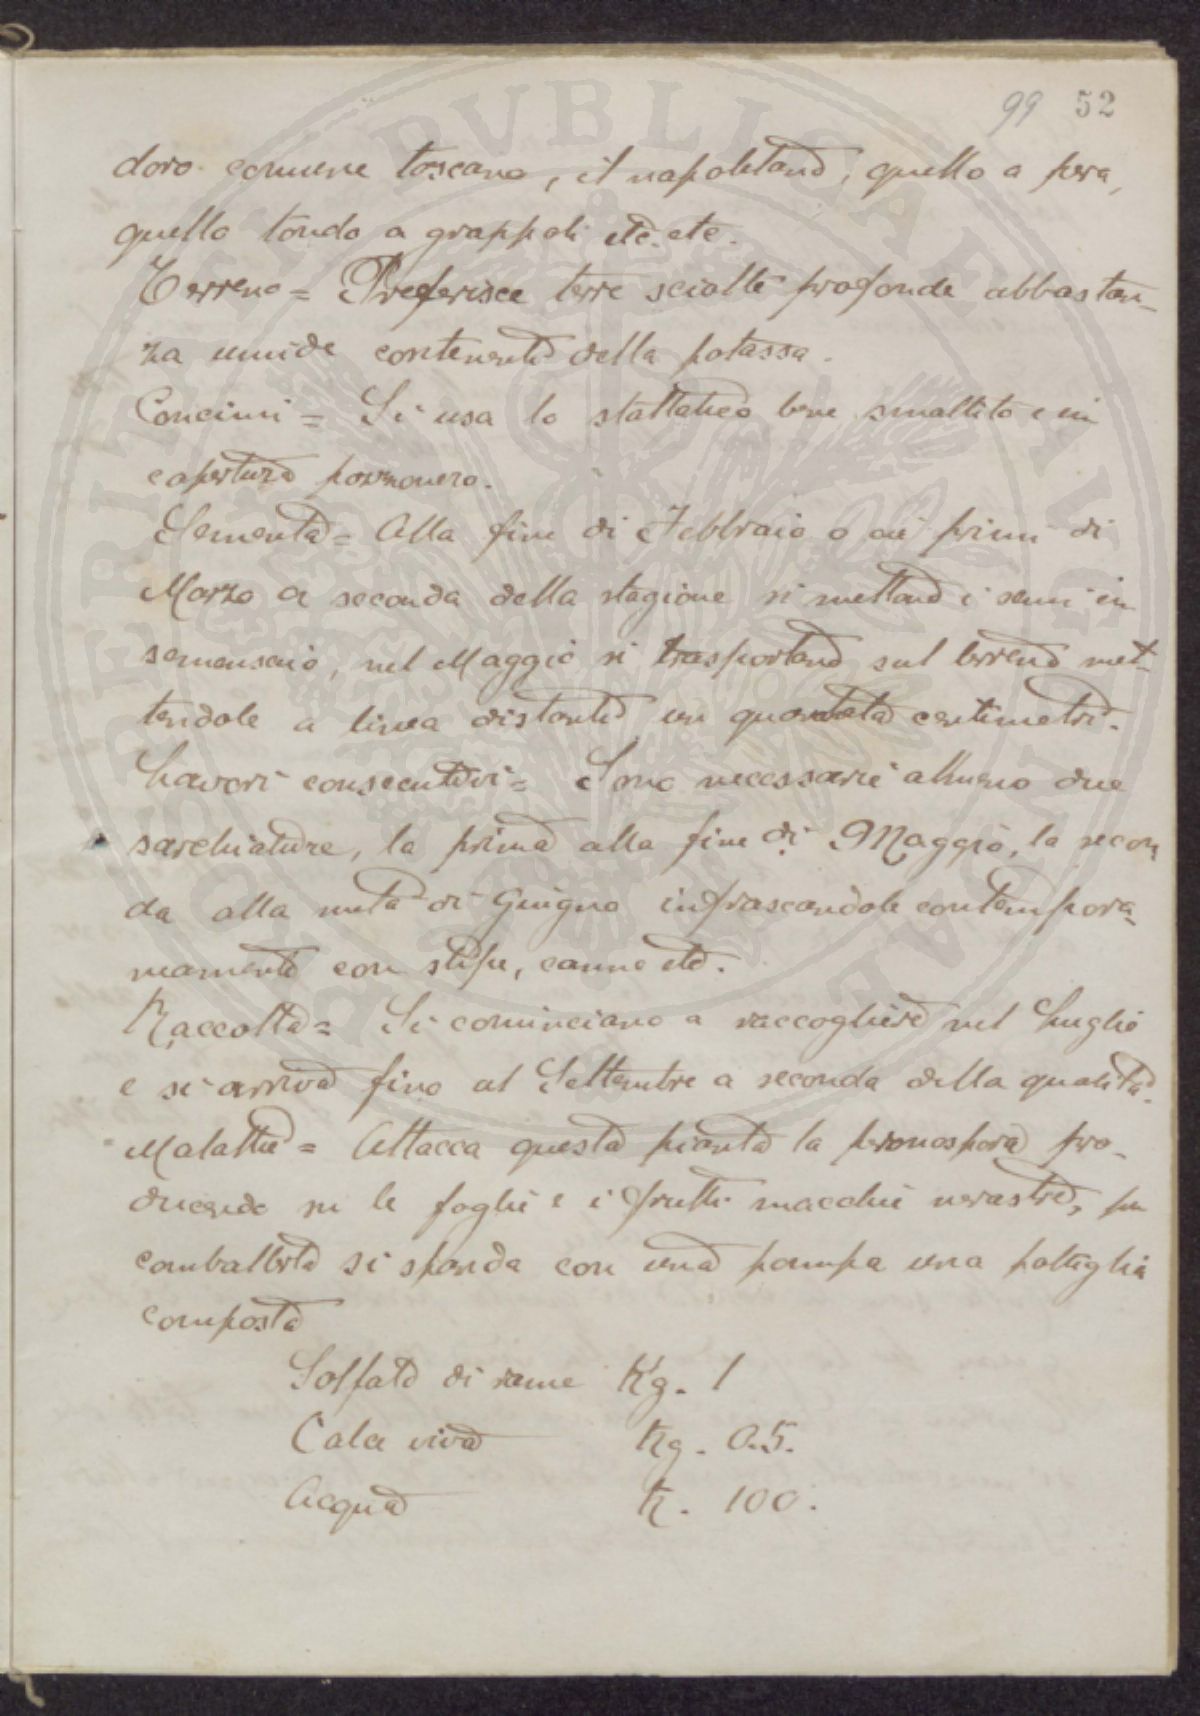 99 52
doro comune toscano, il napoletano, quello a pera,
quello tondo a grappoli etc. etc.
Terreno = Preferisce terre sciolte profonde abbastan-
za umide contenente della potassa.
Concimi = Si usa lo stallatico bene smaltito e in
copertura pozzonero.
Sementa = Alla fine di Febbraio o ai primi di
Marzo a seconda della stagione si mettano i semi in
semensaio, nel Maggio si trasportano sul terreno met-
tendole a linea distante un quaranta centimetri.
Lavori consecutivi = Sono necessarie almeno due
sarchiature, la prima alla fine di Maggio, la secon
da alla metà di Giugno infrascandole contempora-
neamente con stipe, canne etc.
Raccolta = Si cominciano a raccogliere nel Luglio
e si arriva fino al Settembre a seconda della qualità.
Malattie = Attacca questa pianta la peronospora pro-
ducendo su le foglie e i frutti macchie nerastre, per
combatterla si sponda con una pompa una poltiglia
composta
Solfato di rame Kg. 1
Calce viva Kg. 0.5.
Acqua K. 100.
PUBLICAE